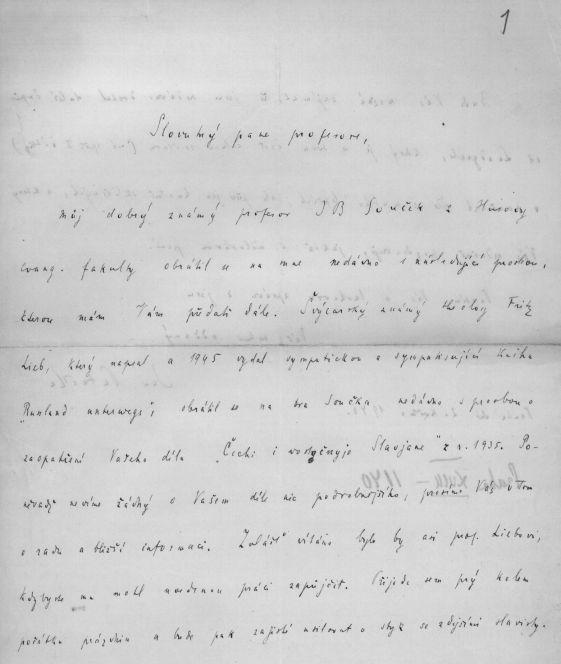 1
Slovutný pane profesore,
můj dobrý známý profesor J B Souček z Husovy
evang. fakulty obrátil se na mne nedávno s následující prosbou,
kterou mám Vám předati dále. Švýcarský známý theolog Fritz
Lieb, který napsal a 1945 vydal sympatickou a sympatisující knihu
"Russland unterwegs", obrátil se na bra Součka nedávno s prosbou o
zaopatření Vašeho díla "Čechi i vostočnyje Slavjane" z r. 1935. Po-
něvadž nevíme žádný o Vašem díle nic podrobnějšího, prosíme Vás
o radu a bližší informaci. Zvlášť vítáno bylo by asi prof. Liebovi,
kdybyste mu mohl uvedenou práci zapůjčit. Přijede sem prý kolem
počátku prázdnin a bude pak zajisté usilovat o styk se zdejšími slavisty.